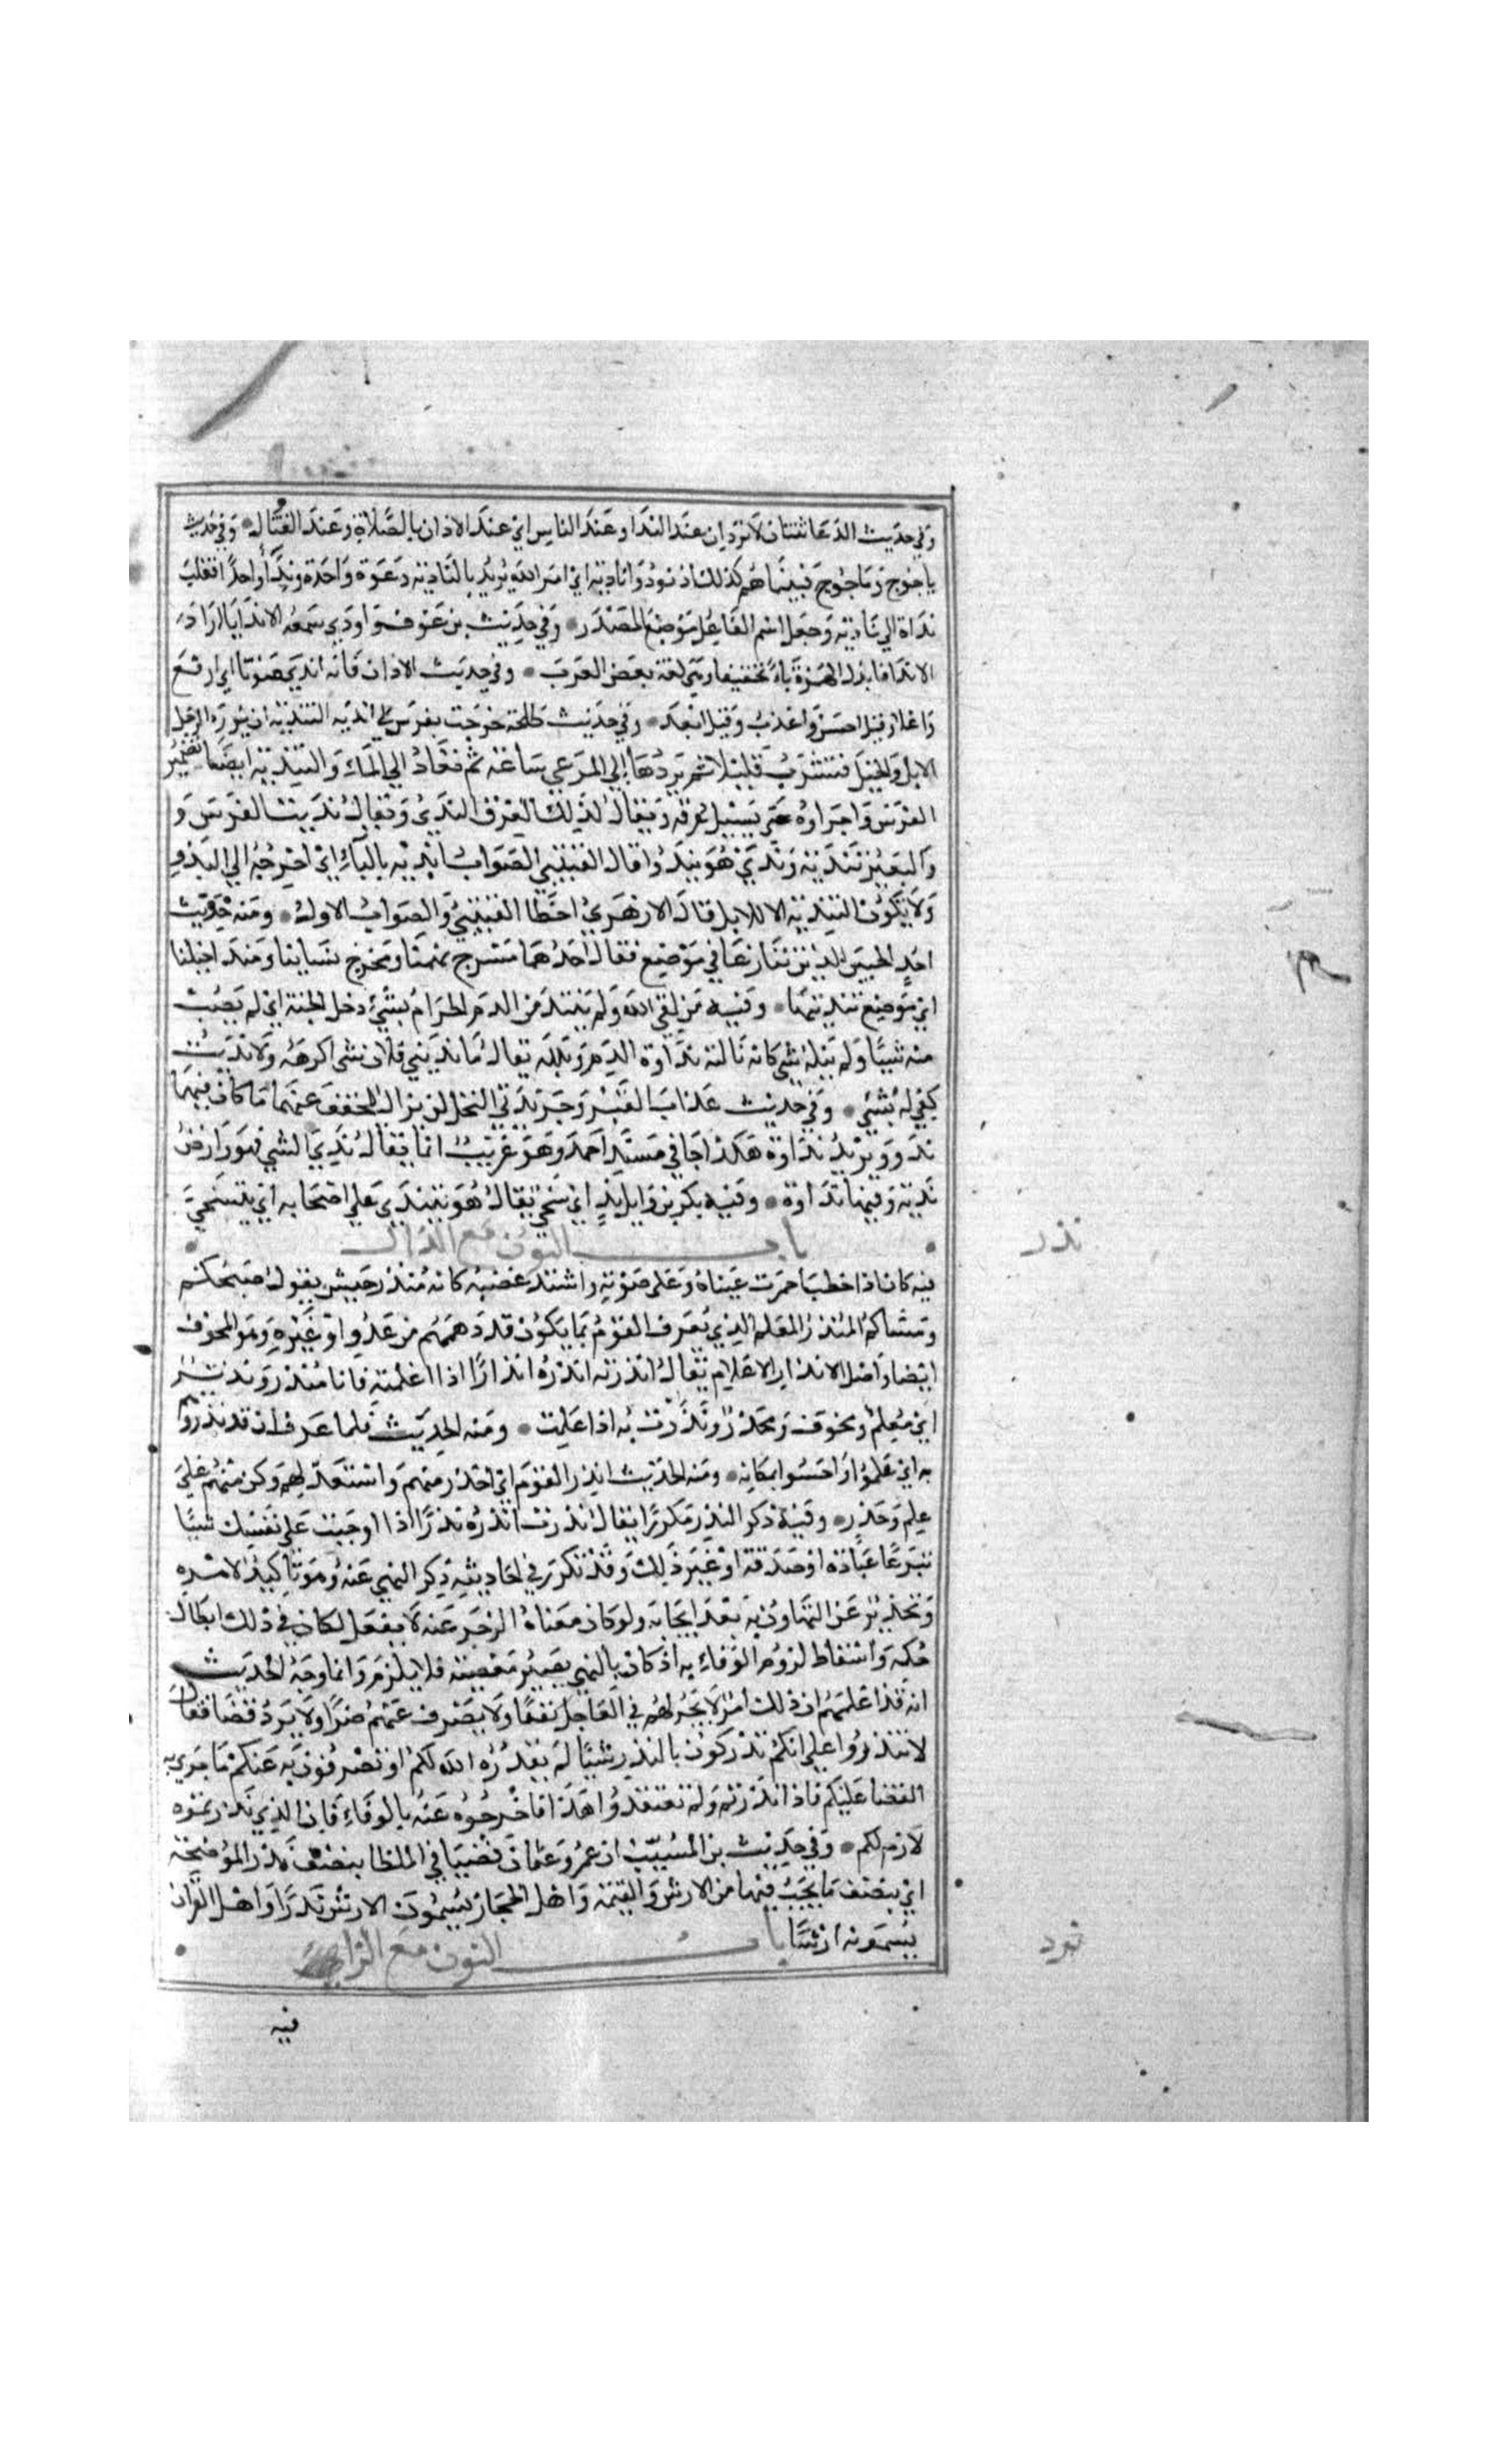 وفي حديث الدعا ثنتان لا تردان عند الندا وعند الناس اي عند الاذان بالصلاة وعند القتال وفي حديث
ياجوج وماجوج فبينما هم كذلك اذ نودوا نادية اي امر الله يريد بالنادية دعوة واحدة وندا واحدا فقلب
نداة الي نادية وجعل اسم الفاعل موضع المصدر وفي حديث بن عوف واودي سمعه الا ندايا اراد
الا ندا فابدل الهمزة ياء تخفيفا وهي لغة بعض العرب وفي حديث الاذان فانه اندي صوتا اي ارفع
واعلا وقيل احسن واعذب وقيل ابعد وفي حديث طلحة خرجت بفرس لي انديه التندية ان يورد الرجل
الابل والخيل فتشرب قليلا ثم يردها الي المرعي ساعة ثم تعاد الي الماء والتندية ايضا تضمير
الفرس واجراوه حتي يسيل عرقه ويقال لذلك العرق الندي ويقال نديت الفرس و
والبعير تندية وندي هو يندو وقال القتيبي الصواب ابديه بالباء اي اخرجه الي البدو
ولا يكون التندية الا للابل قال الازهري اخطا القتيبي والصواب الاول ومنه حديث
احد الحيين الذين تنازعا في موضع فقال احدهما مسرح بهمنا ومخرج نساينا ومندا خيلنا
اي موضع تنديتها وفيه من لقي الله ولم يتند من الدم الحرام بشيء دخل الجنة اي لم يصب
منه شييا ولم ينله شي كانه نالته نداوة الدم وبلله يقال ما نديني فلان شي اكرهه ولا نديت
كفي له بشيء وفي حديث عذاب القبر وجريدتي النخل لن يزال يخفف عنهما ما كان فيهما
ندو ويريد نداوة هكذا جا في مسند احمد وهو غريب انما يقال ندي الشي فهو وارض
ندية وفيها نداوة وفيه بكر بن وايل ند اي سخي يقال هو يتندي علي اصحابه اي يتسخي
باب النون مع الذال
نذر
فيه كان اذا خطب احمرت عيناه وعلي صوته واشتد غضبه كانه منذر جيش يقول صبحكم
ومساكم المنذر المعلم الذي يعرف القوم بما يكون قد دهمهم من عدو او غيره وهو المخوف
ايضا واصل الانذار الاعلام يقال انذرته انذره انذارا اذا اعلمته فانا منذر ونذير
اي معلم ومخوف ومحذر ونذرت به اذا علمت ومنه الحديث فلما عرف ان قد نذروا
به اي علموا واحسوا بمكانه ومنه الحديث انذر القوم اي احذر منهم واستعد لهم وكن منهم علي
علم وحذر وفيه ذكر النذر مكررا يقال نذرت انذره نذرا اذا اوجبت علي نفسك شييا
تبرعا عبادة او صدقة او غير ذلك وقد تكرر في احاديثه ذكر النهي عنه وهو تاكيد لامره
وتحذير عن التهاون به بعد ايجابه ولو كان معناه الزجر عنه لا يفعل لكان في ذلك ابطال
حكمه واسقاط لزوم الوفاء به اذ كان بالنهي يصير معصية فلا يلزم وانما وجه الحديث
انه قد اعلمهم ان ذلك امر لا يجر لهم في العاجل نفعا ولا يصرف عنهم ضرا ولا يرد قضا فقال
لا تنذروا علي انكم تدركون بالنذر شييا لم يقدره الله لكم او تصرفون به عنكم ما جري به
القضا عليكم فاذا نذرتم ولم تعتقدوا هذا فاخرجوه عنه بالوفاء فان الذي نذرتموه
لازم لكم وفي حديث بن المسيب ان عمر وعثمان قضيا في الملطا بنصف نذر الموضحة
اي بنصف ما يجب فيها من الارش والقيمة واهل الحجاز يسمون الارش نذرا واهل العراق
يسمونه ارشا باب النون مع الراء
نرد
فيه